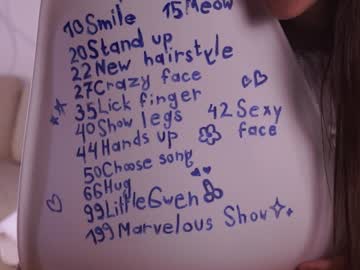 10 Smile 15 Meow
20 Stand up
22 New hairstyle
27 Crazy face
35 Lick finger
40 Show legs 42 Sexy
44 Hands up face
50 Choose song
66 Hug
99 Little Gwen
199 Marvelous Show